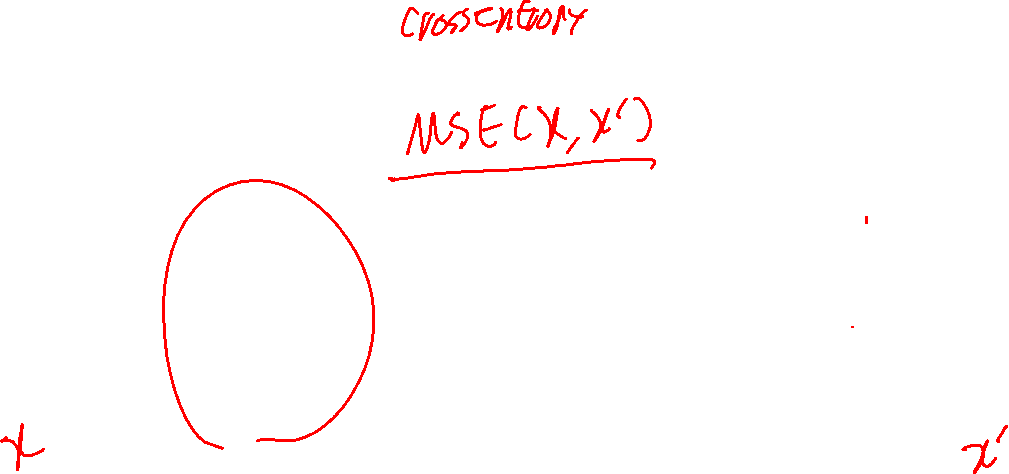 crossentropy
MSE(x, x')
x x'